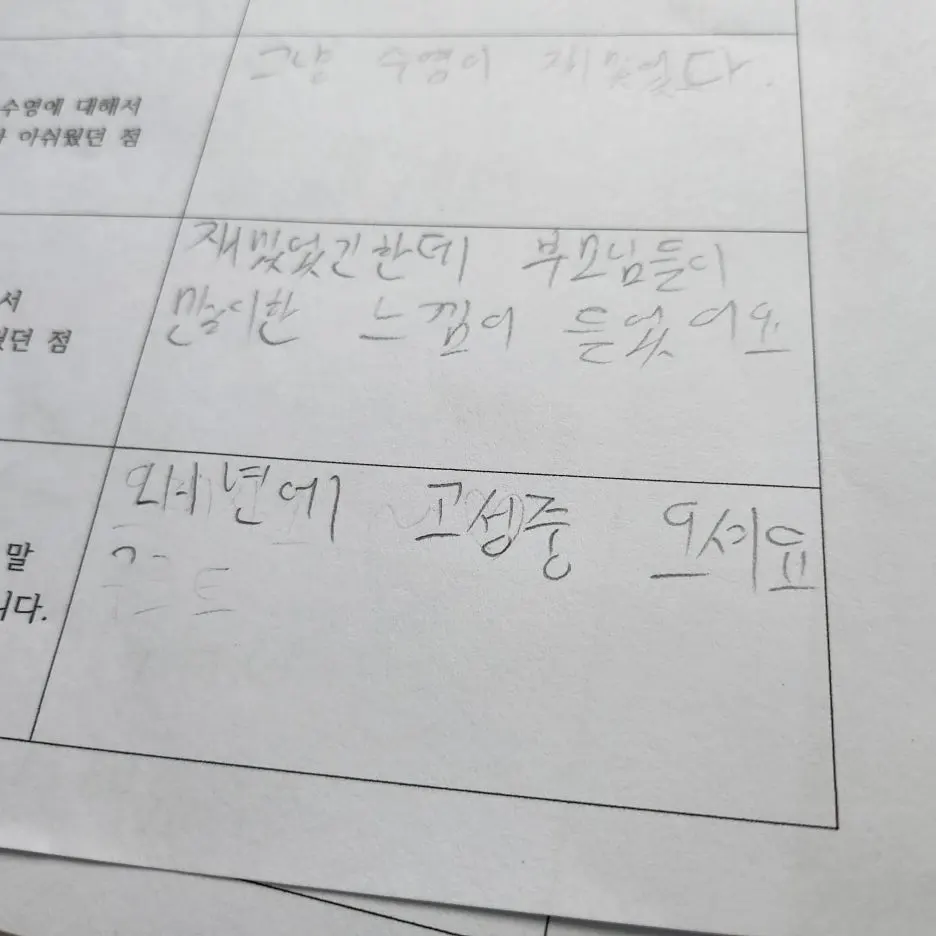 그냥 수영이 재밌었다.
수영에 대해서
아쉬웠던 점
재밌었긴한데 부모님들이
말이한 느낌이 듣었어요
서
던 점
고성중 오세요
말
니다.